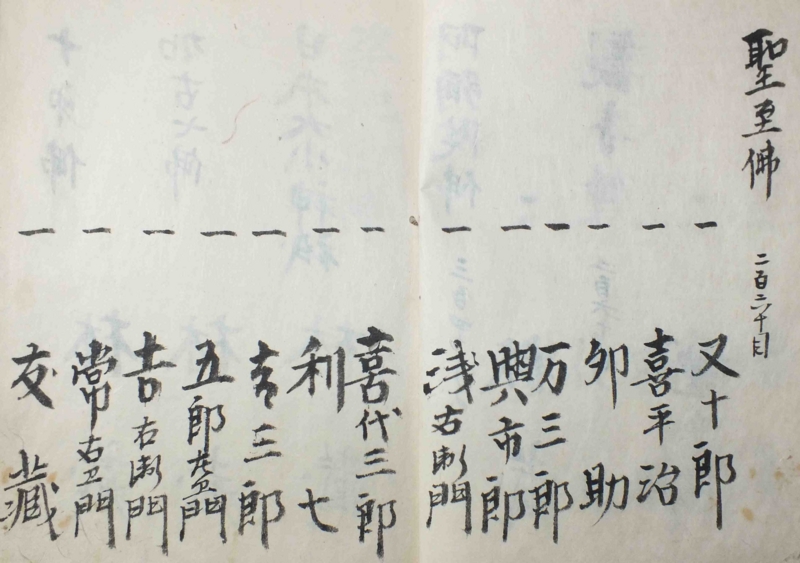 聖至佛
二百六十目
一 又十郎
一 喜平治
一 卯助
一 万三郎
一 與市郎
一 浅右衛門
一 喜代三郎
一 利七
一 吉三郎
一 五郎左衛門
一 吉右衛門
一 常右衛門
一 友藏